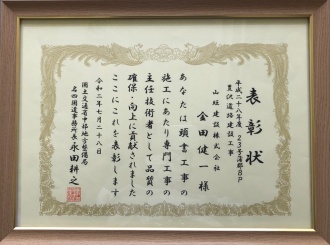 表彰状
平成二十八年度 23号蒲郡BP
豊沢道路建設工事
山旺建設株式会社
金田健一様
あなたは頭書工事の
施工にあたり専門工事の
主任技術者として品質の
確保・向上に貢献されました
ここにこれを表彰します
令和二年七月二十八日
国土交通省中部地方整備局
名四国道事務所長 永田耕之